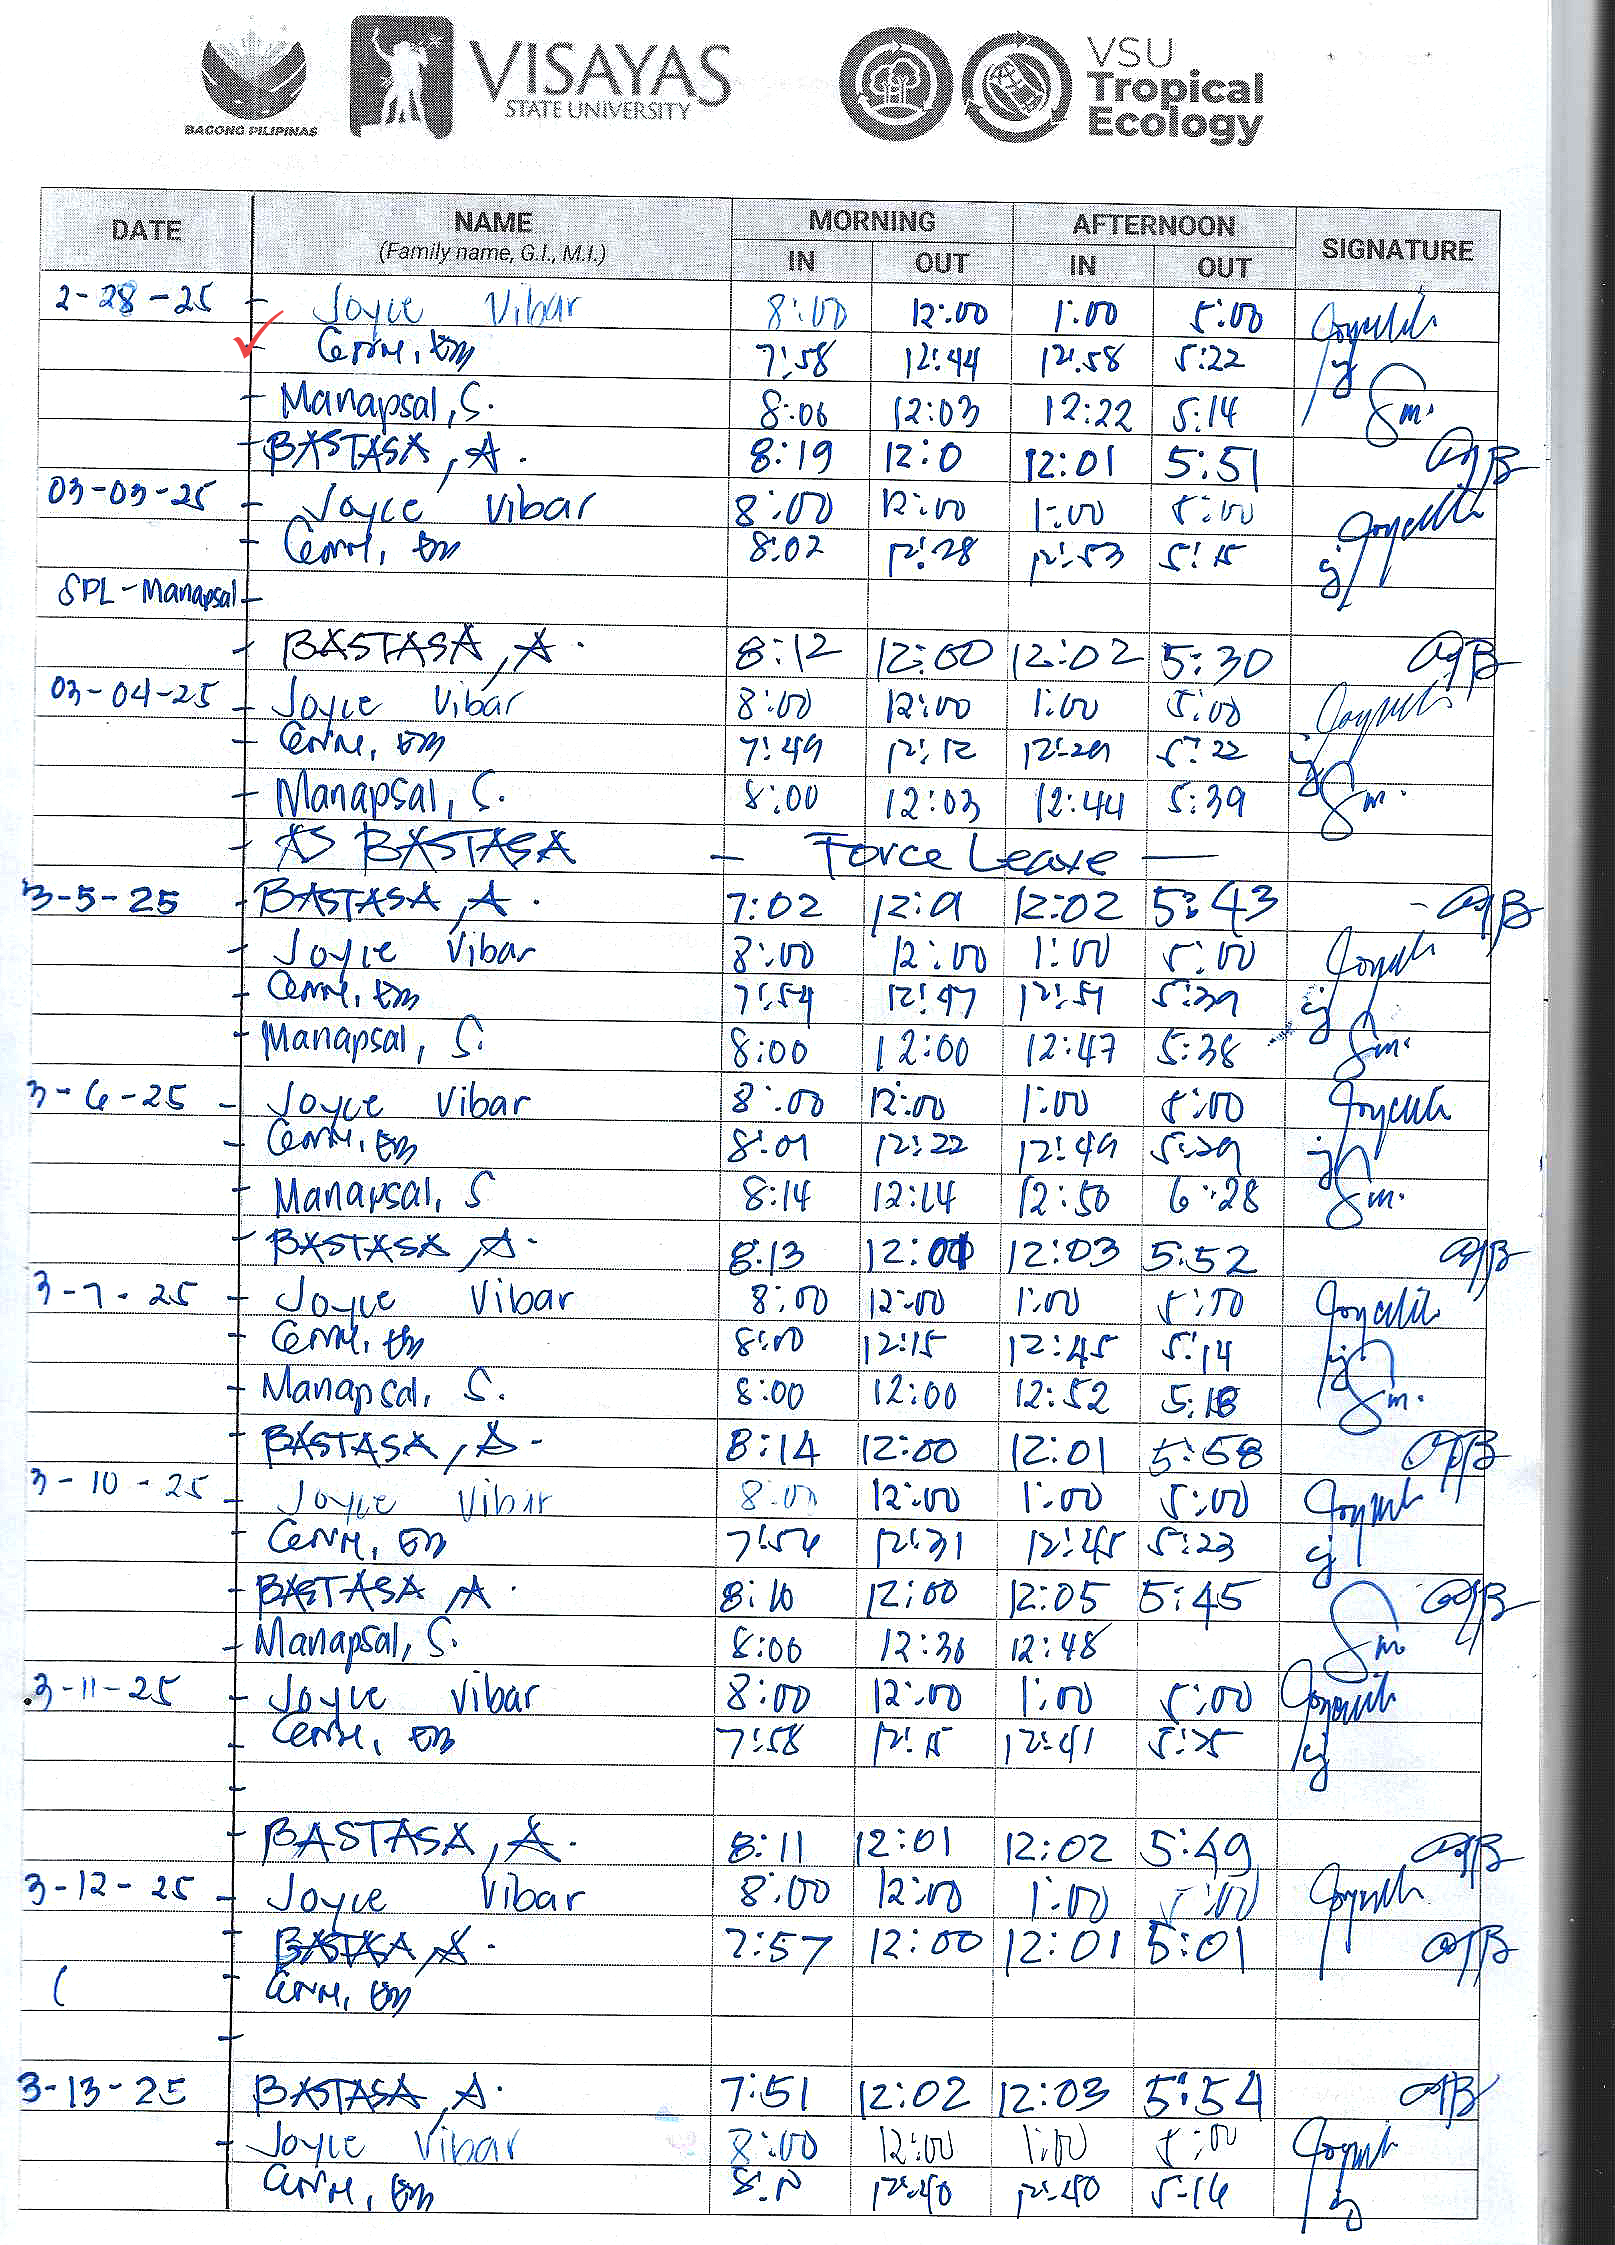 BAGONG PILIPINAS
VISAYAS
STATE UNIVERSITY
VSU
Tropical
Ecology
DATE NAME MORNING AFTERNOON SIGNATURE
(Family name, G.I., M.I.) IN OUT IN OUT
2-28-25 Joyce Vibar 8:00 12:00 1:00 5:00
7:58 12:44 12:58 5:22
Manapsal, S. 8:06 12:03 12:22 5:14 Sm.
BASTASA, A. 8:19 12:0 12:01 5:51
03-03-25 Joyce Vibar 8:00 12:00 1:00 5:00
8:02 12:28 12:53 5:15
SPL-Manapsal
BASTASA, A. 8:12 12:00 12:02 5:30
03-04-25 Joyce Vibar 8:00 12:00 1:00 5:00
7:49 12:12 12:29 5:22
Manapsal, S. 8:00 12:03 12:44 5:39 Sm.
AS BASTASA - Force Leave -
3-5-25 BASTASA, A. 7:02 12:01 12:02 5:43
Joyce Vibar 8:00 12:00 1:00 5:00
7:54 12:47 12:51 5:39
Manapsal, S. 8:00 12:00 12:47 5:38 Sm.
3-6-25 Joyce Vibar 8:00 12:00 1:00 5:00
8:01 12:22 12:49 5:29
Manapsal, S 8:14 12:14 12:50 6:28 Sm.
BASTASA, A. 8:13 12:01 12:03 5:52
3-7-25 Joyce Vibar 8:00 12:00 1:00 5:00
8:00 12:15 12:45 5:14
Manapsal, S. 8:00 12:00 12:52 5:18 Sm.
BASTASA, A. 8:14 12:00 12:01 5:58
3-10-25 Joyce Vibar 8:00 12:00 1:00 5:00
7:54 12:31 12:45 5:23
BASTASA, A. 8:10 12:00 12:05 5:45
Manapsal, S. 8:00 12:36 12:48 Sm
3-11-25 Joyce Vibar 8:00 12:00 1:00 5:00
7:58 12:15 12:41 5:25
BASTASA, A. 8:11 12:01 12:02 5:49
3-12-25 Joyce Vibar 8:00 12:00 1:00 5:00
BASTASA, A. 7:57 12:00 12:01 5:01
3-13-25 BASTASA, A. 7:51 12:02 12:03 5:54
Joyce Vibar 8:00 12:00 1:00 5:00
12:40 12:40 5-16